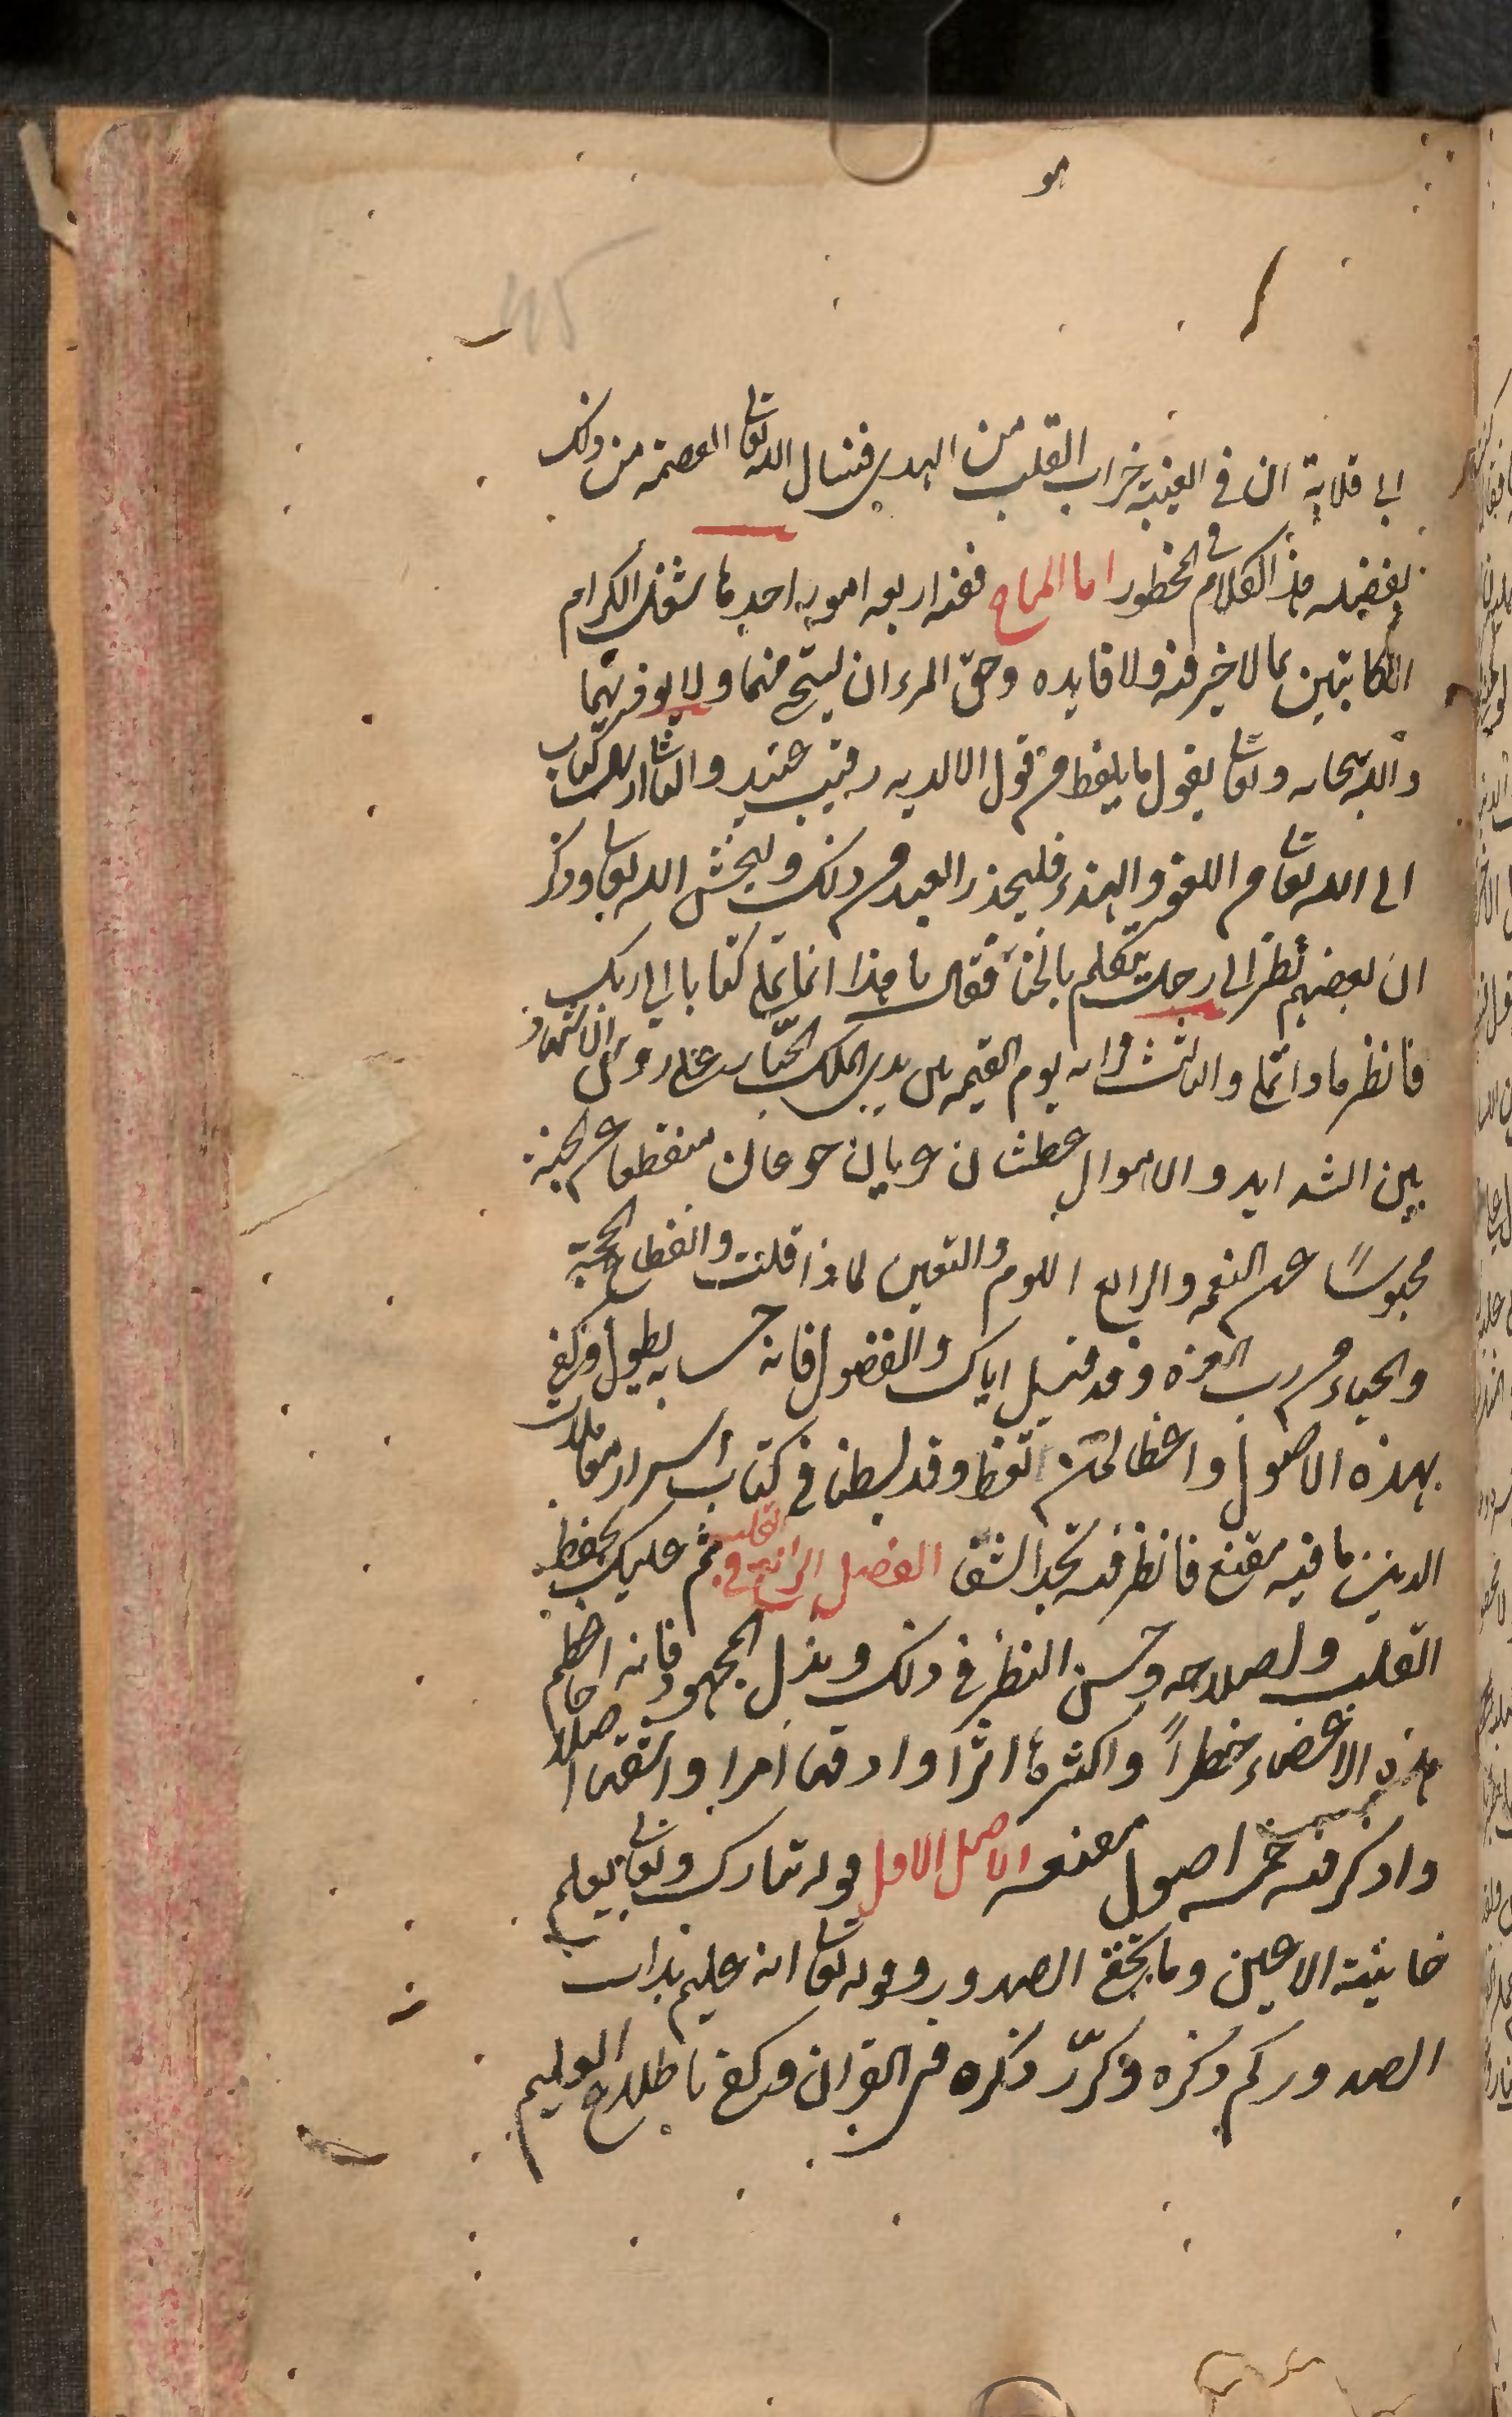 هو
45
ابي قلابة ان في الغيبة خراب القلب من الهدى فنسال الله تعالى العصمة من ذلك
بفضله هذا الكلام في المحظور اما المباح ففيه اربعة امور احدها شغل الكرام
الكاتبين بما لا خير فيه ولا فايدة وحق المرء ان يستحي منهما ولا يوذيهما
والله سبحانه وتعالى يقول ما يلفظ من قول الا لديه رقيب عتيد والثاني ارسال كتاب
الى الله تعالى من اللغو والهذر فليحذر العبد من ذلك وليخش الله تعالى وذكر
ان بعضهم نظر الى رجل يتكلم بالخنا فقال يا هذا انما تملي كتابا الى ربك
فانظر ماذا تملي والثالث قراته يوم القيمة بين يدي الملك الجبار على رؤس الاشهاد
بين الشدايد والاهوال عطشان عريان جوعان منقطعا عن الجنة
محبوسًا عن النعمة والرابع اللوم والتعيير لماذا قلت وانقطاع الحجة
والحياء من رب العزة وقد قيل اياك والفضول فان حسابه يطول وكفى
بهذه الاصول واعظا لمن اتعظ وقد بسطنا في كتاب اسرار معاملات
الدين ما فيه مقنع فانظر فيه تجد الشفا الفصل الرابع في القلب ثم عليك بحفظ
القلب واصلاحه وحسن النظر في ذلك وبذل المجهود فانه اعظم
هذه الاعضاء خطراً واكثرها اثرا وادقها امرا واشقها اصلاحا
واذكر فيه خمسة اصول مقنعة الاصل الاول قوله تبارك وتعالى يعلم
خاينة الاعين وما تخفي الصدور وقوله تعالى انه عليم بذات
الصدور كم ذكره وكرّر ذكره في القران وكفى باطلاع العليم